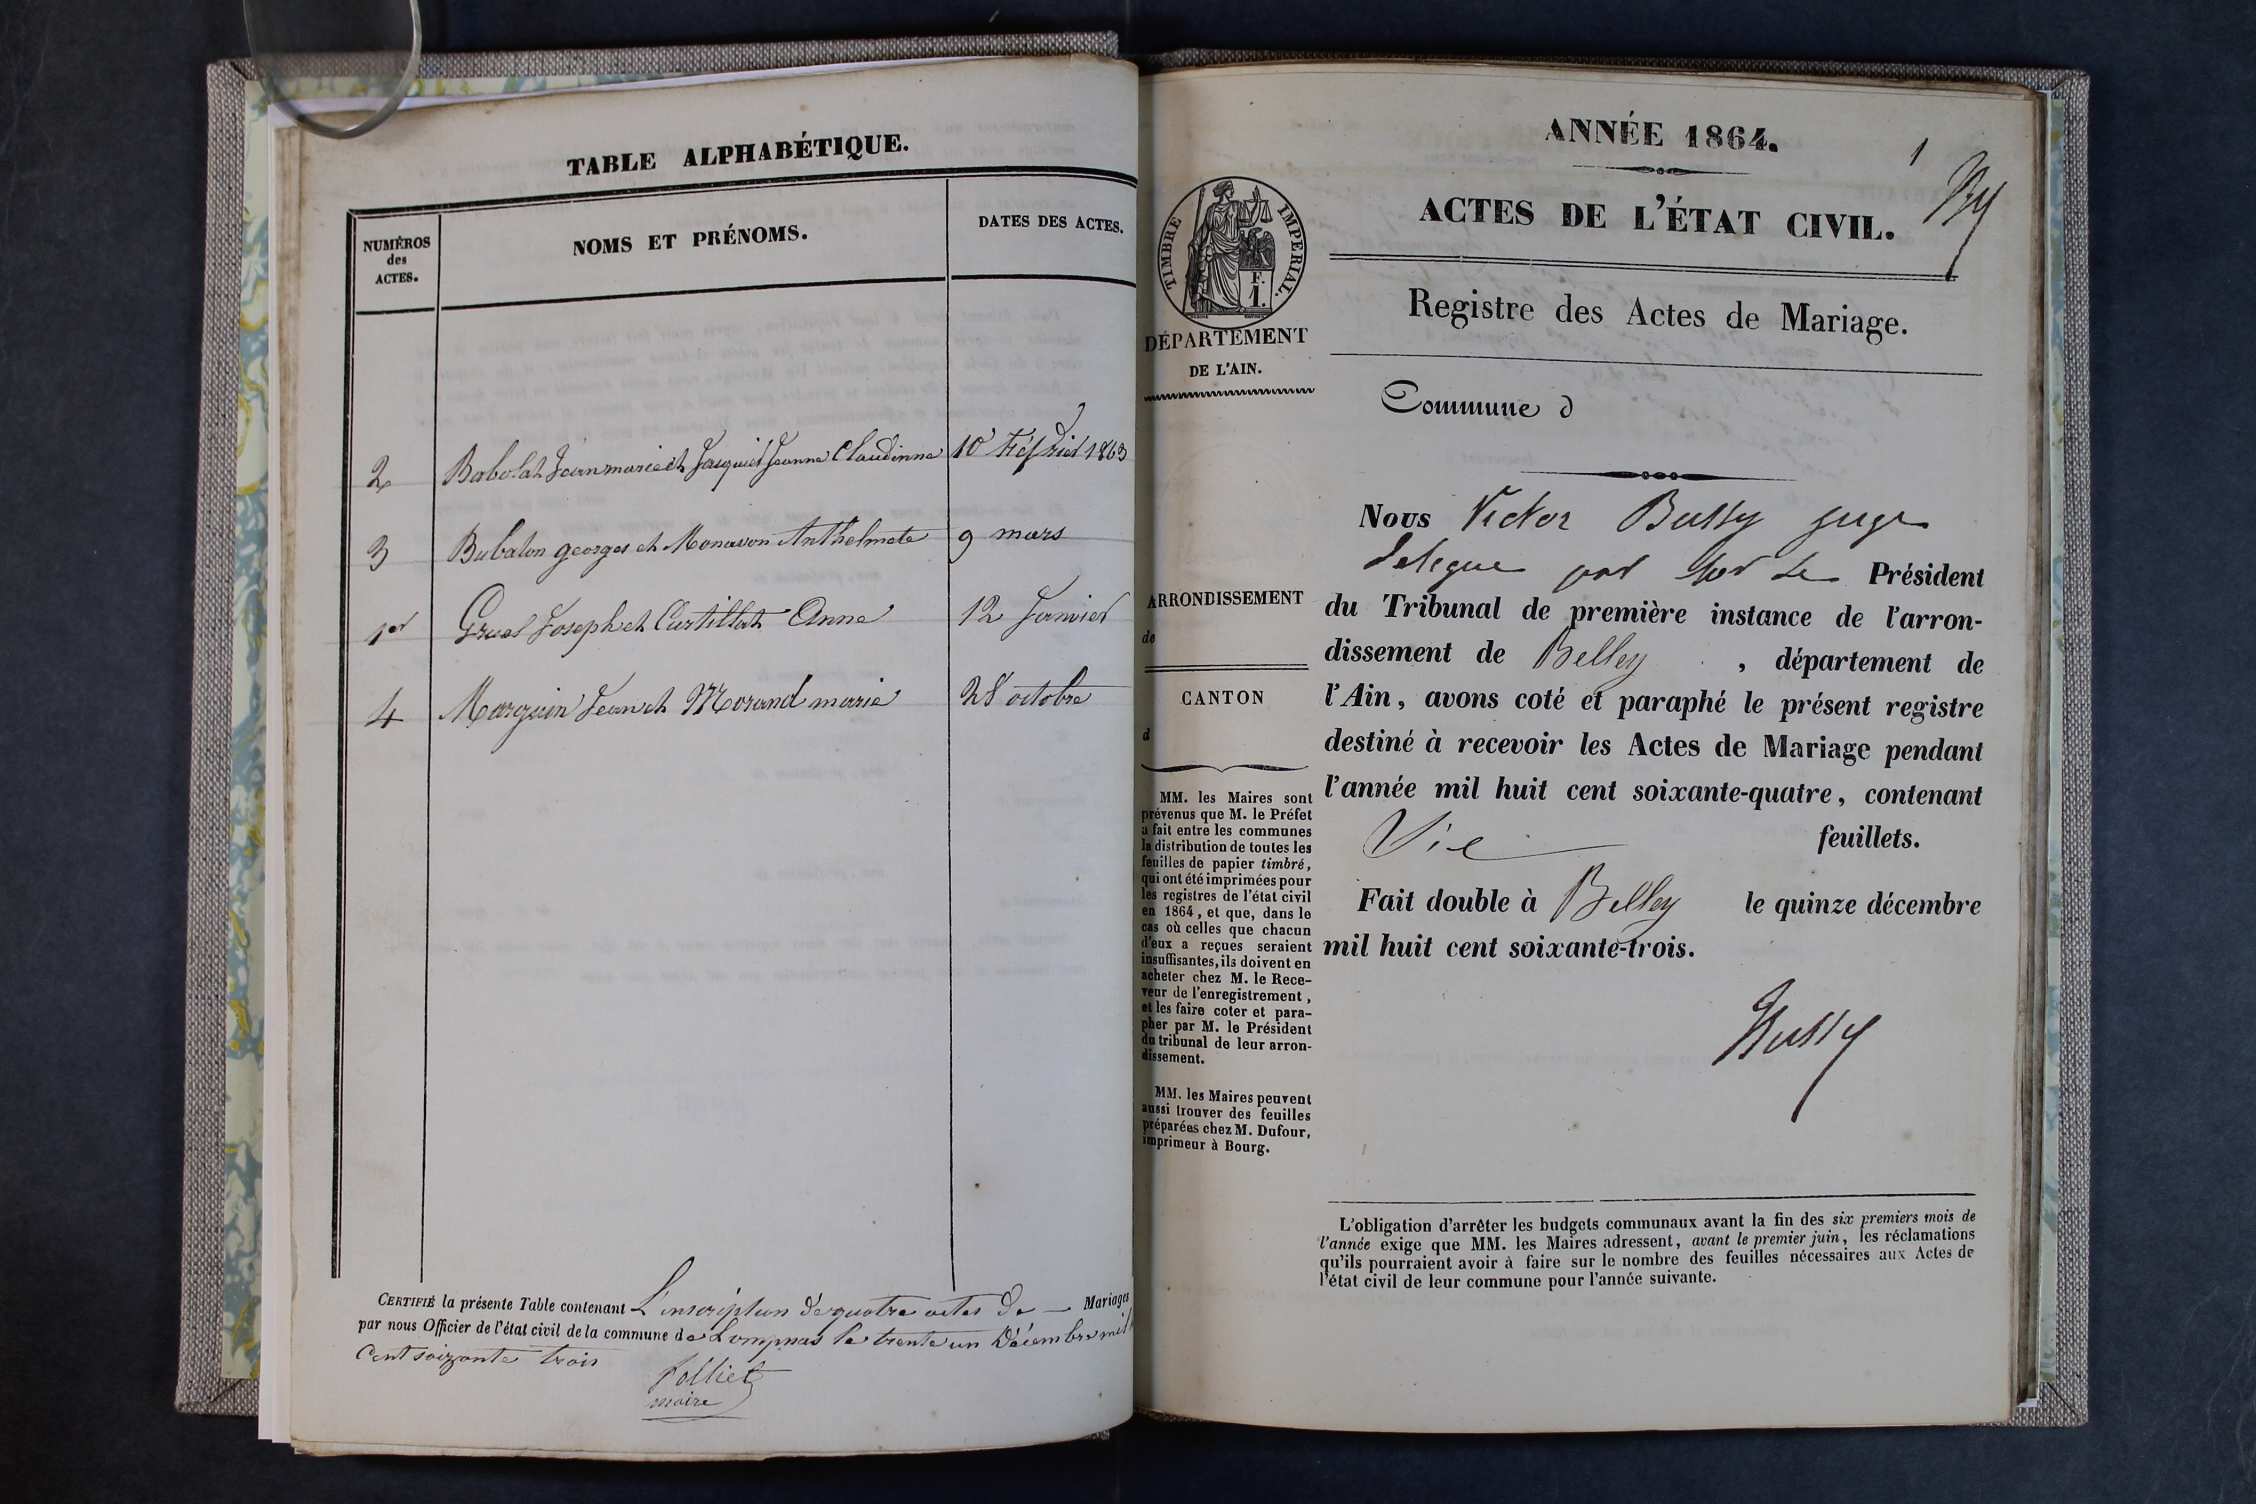 TABLE ALPHABÉTIQUE.
NUMÉROS
des
ACTES.
NOMS ET PRÉNOMS.
DATES DES ACTES.
2 Babolat Jean marie et Jaquier Jeanne Claudinne 10 Février 1863
3 Bubaton georges et Monavon Anthelmete 9 mars
1er Gruel Joseph et Curtillat Anne 12 Janvier
4 Marguin Jean et Morand marie 28 octobre
CERTIFIÉ la présente Table contenant L'inscription de quatre actes de — Mariages
par nous Officier de l'état civil de la commune de Lompnas le trente un Décembre mil
cent soixante trois
Folliet
maire
ANNÉE 1864.
1
By
ACTES DE L'ÉTAT CIVIL.
Registre des Actes de Mariage.
TIMBRE IMPERIAL.
F.
1.
DÉPARTEMENT
DE L'AIN.
Commune d
Nous Victor Bussy juge
delegue par Mr Le Président
du Tribunal de première instance de l'arron-
dissement de Belley , département de
l'Ain, avons coté et paraphé le présent registre
destiné à recevoir les Actes de Mariage pendant
l'année mil huit cent soixante-quatre, contenant
Six feuillets.
Fait double à Belley le quinze décembre
mil huit cent soixante-trois.
Bussy
ARRONDISSEMENT
de
CANTON
d
MM. les Maires sont
prévenus que M. le Préfet
a fait entre les communes
la distribution de toutes les
feuilles de papier timbré,
qui ont été imprimées pour
les registres de l'état civil
en 1864, et que, dans le
cas où celles que chacun
d'eux a reçues seraient
insuffisantes, ils doivent en
acheter chez M. le Rece-
veur de l'enregistrement,
et les faire coter et para-
pher par M. le Président
du tribunal de leur arron-
dissement.
MM. les Maires peuvent
aussi trouver des feuilles
préparées chez M. Dufour,
imprimeur à Bourg.
L'obligation d'arrêter les budgets communaux avant la fin des six premiers mois de
l'année exige que MM. les Maires adressent, avant le premier juin, les réclamations
qu'ils pourraient avoir à faire sur le nombre des feuilles nécessaires aux Actes de
l'état civil de leur commune pour l'année suivante.